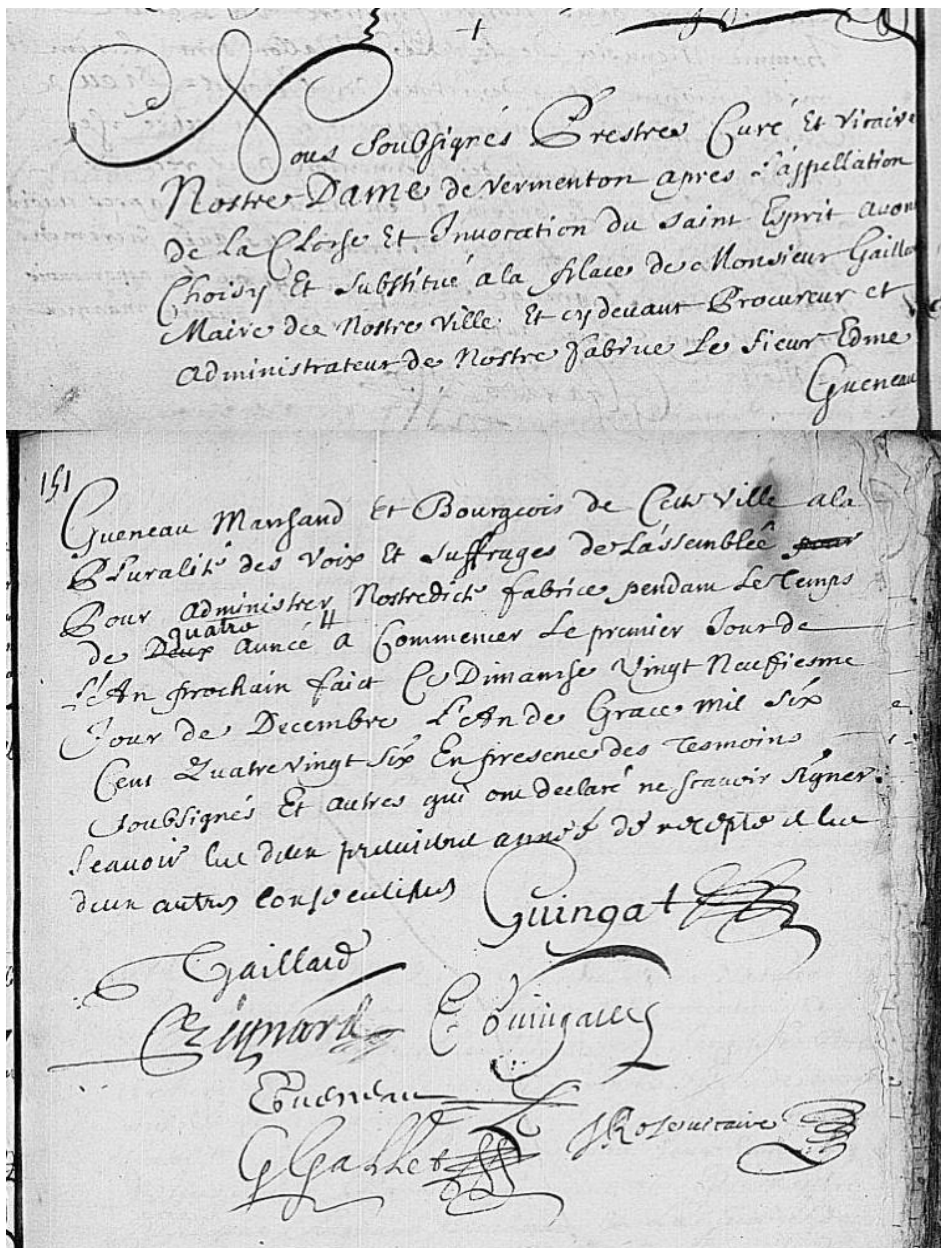 Nous Soubsignés Prestre Curé Et Vicaire
Nostre Dame de Vermenton apres l'appellation
de la Cloche Et Invocation du Saint Esprit avon
Choisy Et Substitué a la place de Monsieur Gailla
Maire de Nostre Ville Et cy devant Procureur et
Administrateur de Nostre fabrice Le Sieur Edme
Gueneau
151
Gueneau Marchand Et Bourgeois de Cette Ville a la
Pluralité des Voix Et Suffrages de L'assemblée pour
Pour Administrer Nostredicte fabrice pendant Le Temps
quatre
de Deux année A Commencer Le premier Jour de
l'An prochain faict Ce Dimanche Vingt Neuffiesme
Jour de Decembre L'An de Grace mil six
Cent Quatre vingt six En presence des Tesmoins
Soubsignés Et autres qui ont declaré ne scavoir signer.
Scavoir les deux année de recepte et les
deux autres consecutives
Guingat
Gaillard
Regnard
Gueneau
G Gallet
Rose vicaire